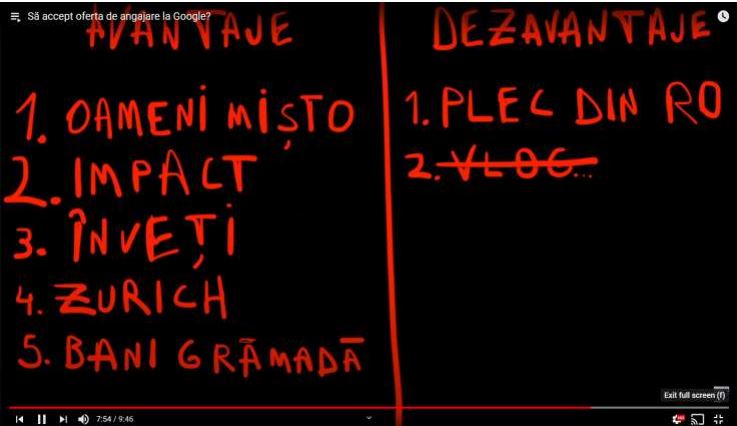 Să accept oferta de angajare la Google?
AVANTAJE
1. OAMENI MIȘTO
2. IMPACT
3. ÎNVEȚI
4. ZURICH
5. BANI GRĂMADĂ
DEZAVANTAJE
1. PLEC DIN RO
2. VLOG...
Exit full screen (f)
7:54 / 9:46
HD